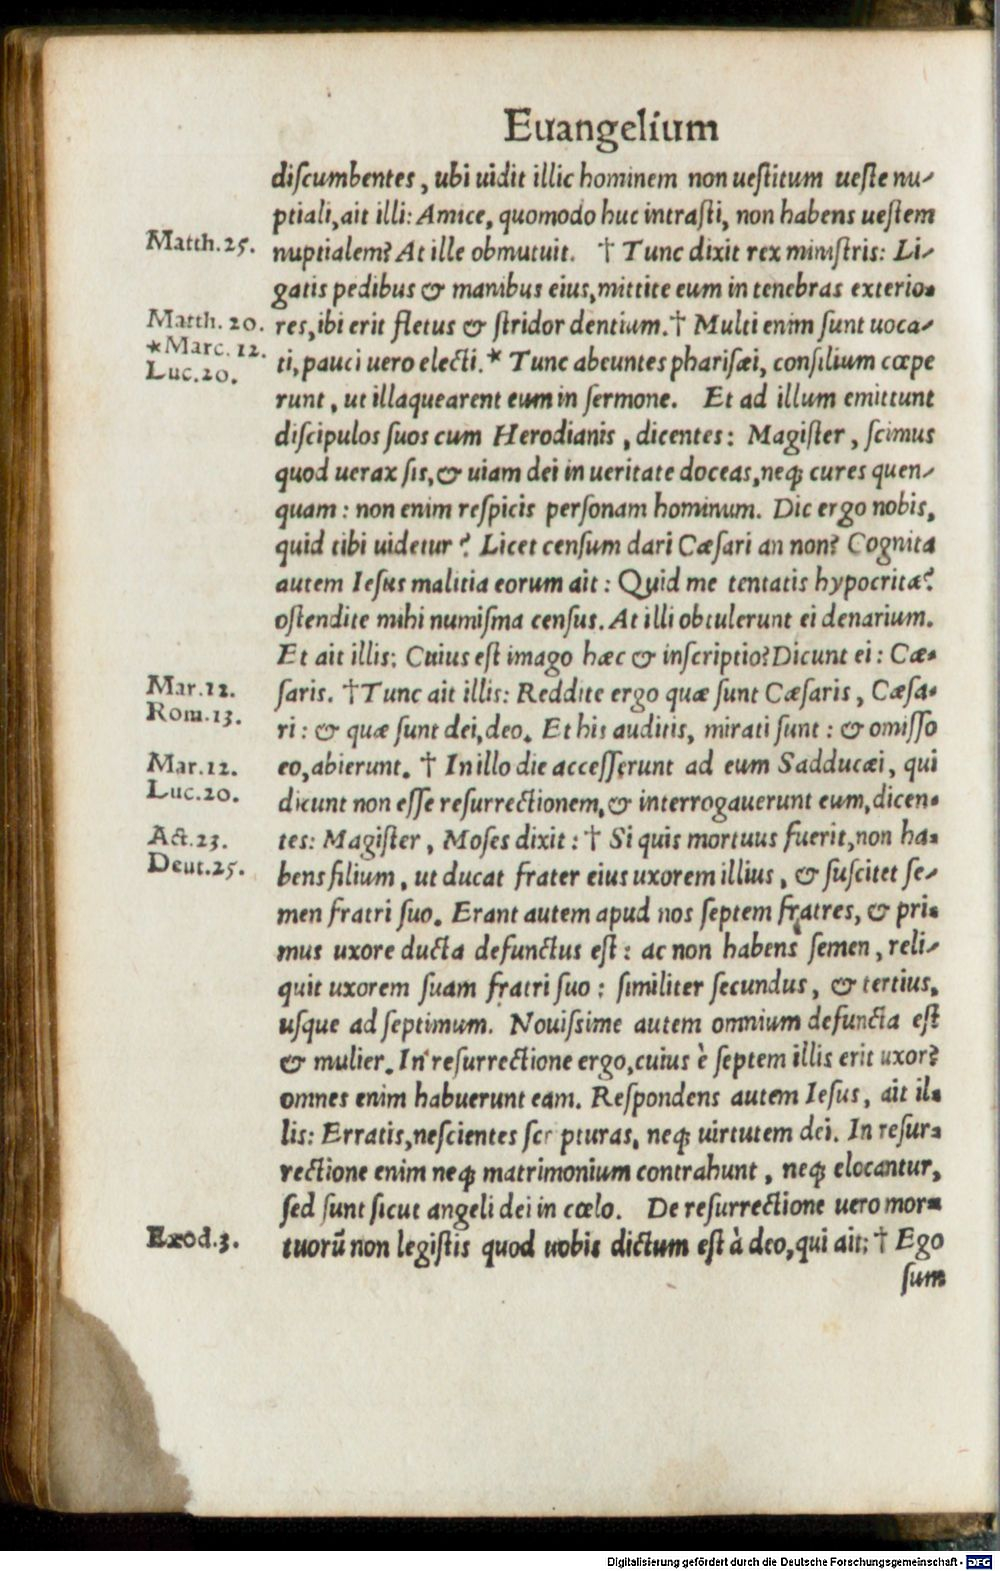 Euangelium
discumbentes, ubi uidit illic hominem non uestitum ueste nu-
ptiali, ait illi: Amice, quomodo huc intrasti, non habens uestem
Matth.25. nuptialem? At ille obmutuit. † Tunc dixit rex ministris: Li-
gatis pedibus & manibus eius, mittite eum in tenebras exterio-
Matth. 20. res, ibi erit fletus & stridor dentium. † Multi enim sunt uoca-
*Marc. 12. ti, pauci uero electi. * Tunc abeuntes pharisæi, consilium cœpe
Luc.20. runt, ut illaquearent eum in sermone. Et ad illum emittunt
discipulos suos cum Herodianis, dicentes: Magister, scimus
quod uerax sis, & uiam dei in ueritate doceas, neq; cures quen-
quam: non enim respicis personam hominum. Dic ergo nobis,
quid tibi uidetur? Licet censum dari Cæsari an non? Cognita
autem Iesus malitia eorum ait: Quid me tentatis hypocritæ?
ostendite mihi numisma census. At illi obtulerunt ei denarium.
Et ait illis: Cuius est imago hæc & inscriptio? Dicunt ei: Cæ-
Mar.12. saris. † Tunc ait illis: Reddite ergo quæ sunt Cæsaris, Cæsa-
Rom.13. ri: & quæ sunt dei, deo. Et his auditis, mirati sunt: & omisso
Mar.12. eo, abierunt. † In illo die accesserunt ad eum Sadducæi, qui
Luc.20. dicunt non esse resurrectionem, & interrogauerunt eum, dicen-
Act.23. tes: Magister, Moses dixit: † Si quis mortuus fuerit, non ha-
Deut.25. bens filium, ut ducat frater eius uxorem illius, & suscitet se-
men fratri suo. Erant autem apud nos septem fratres, & pri-
mus uxore ducta defunctus est: ac non habens semen, reli-
quit uxorem suam fratri suo: similiter secundus, & tertius,
usque ad septimum. Nouissime autem omnium defuncta est
& mulier. In resurrectione ergo, cuius è septem illis erit uxor?
omnes enim habuerunt eam. Respondens autem Iesus, ait il-
lis: Erratis, nescientes scr pturas, neq; uirtutem dei. In resur-
rectione enim neq; matrimonium contrahunt, neq; elocantur,
sed sunt sicut angeli dei in cœlo. De resurrectione uero mor-
Exod.3. tuorũ non legistis quod uobis dictum est à deo, qui ait: † Ego
sum
Digitalisierung gefördert durch die Deutsche Forschungsgemeinschaft - DFG